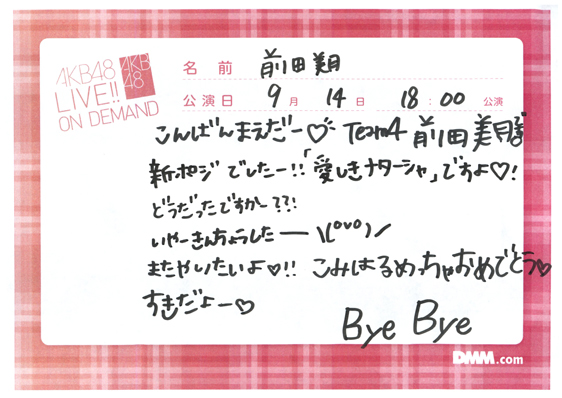 AKB48
LIVE!!
ON DEMAND
AKB
48
名前 前田美月
公演日 9月 14日 18:00 公演
こんばんまえだー♡ Team4 前田美月
新ポジでしたー!!「愛しきナターシャ」ですよ♡!
どうだったですかー??!
いやーきんちょうしたー \(ovo)/
またやりたいよ♡!! こみはるめっちゃおめでとう♡
すきだよー♡
Bye Bye
DMM.com